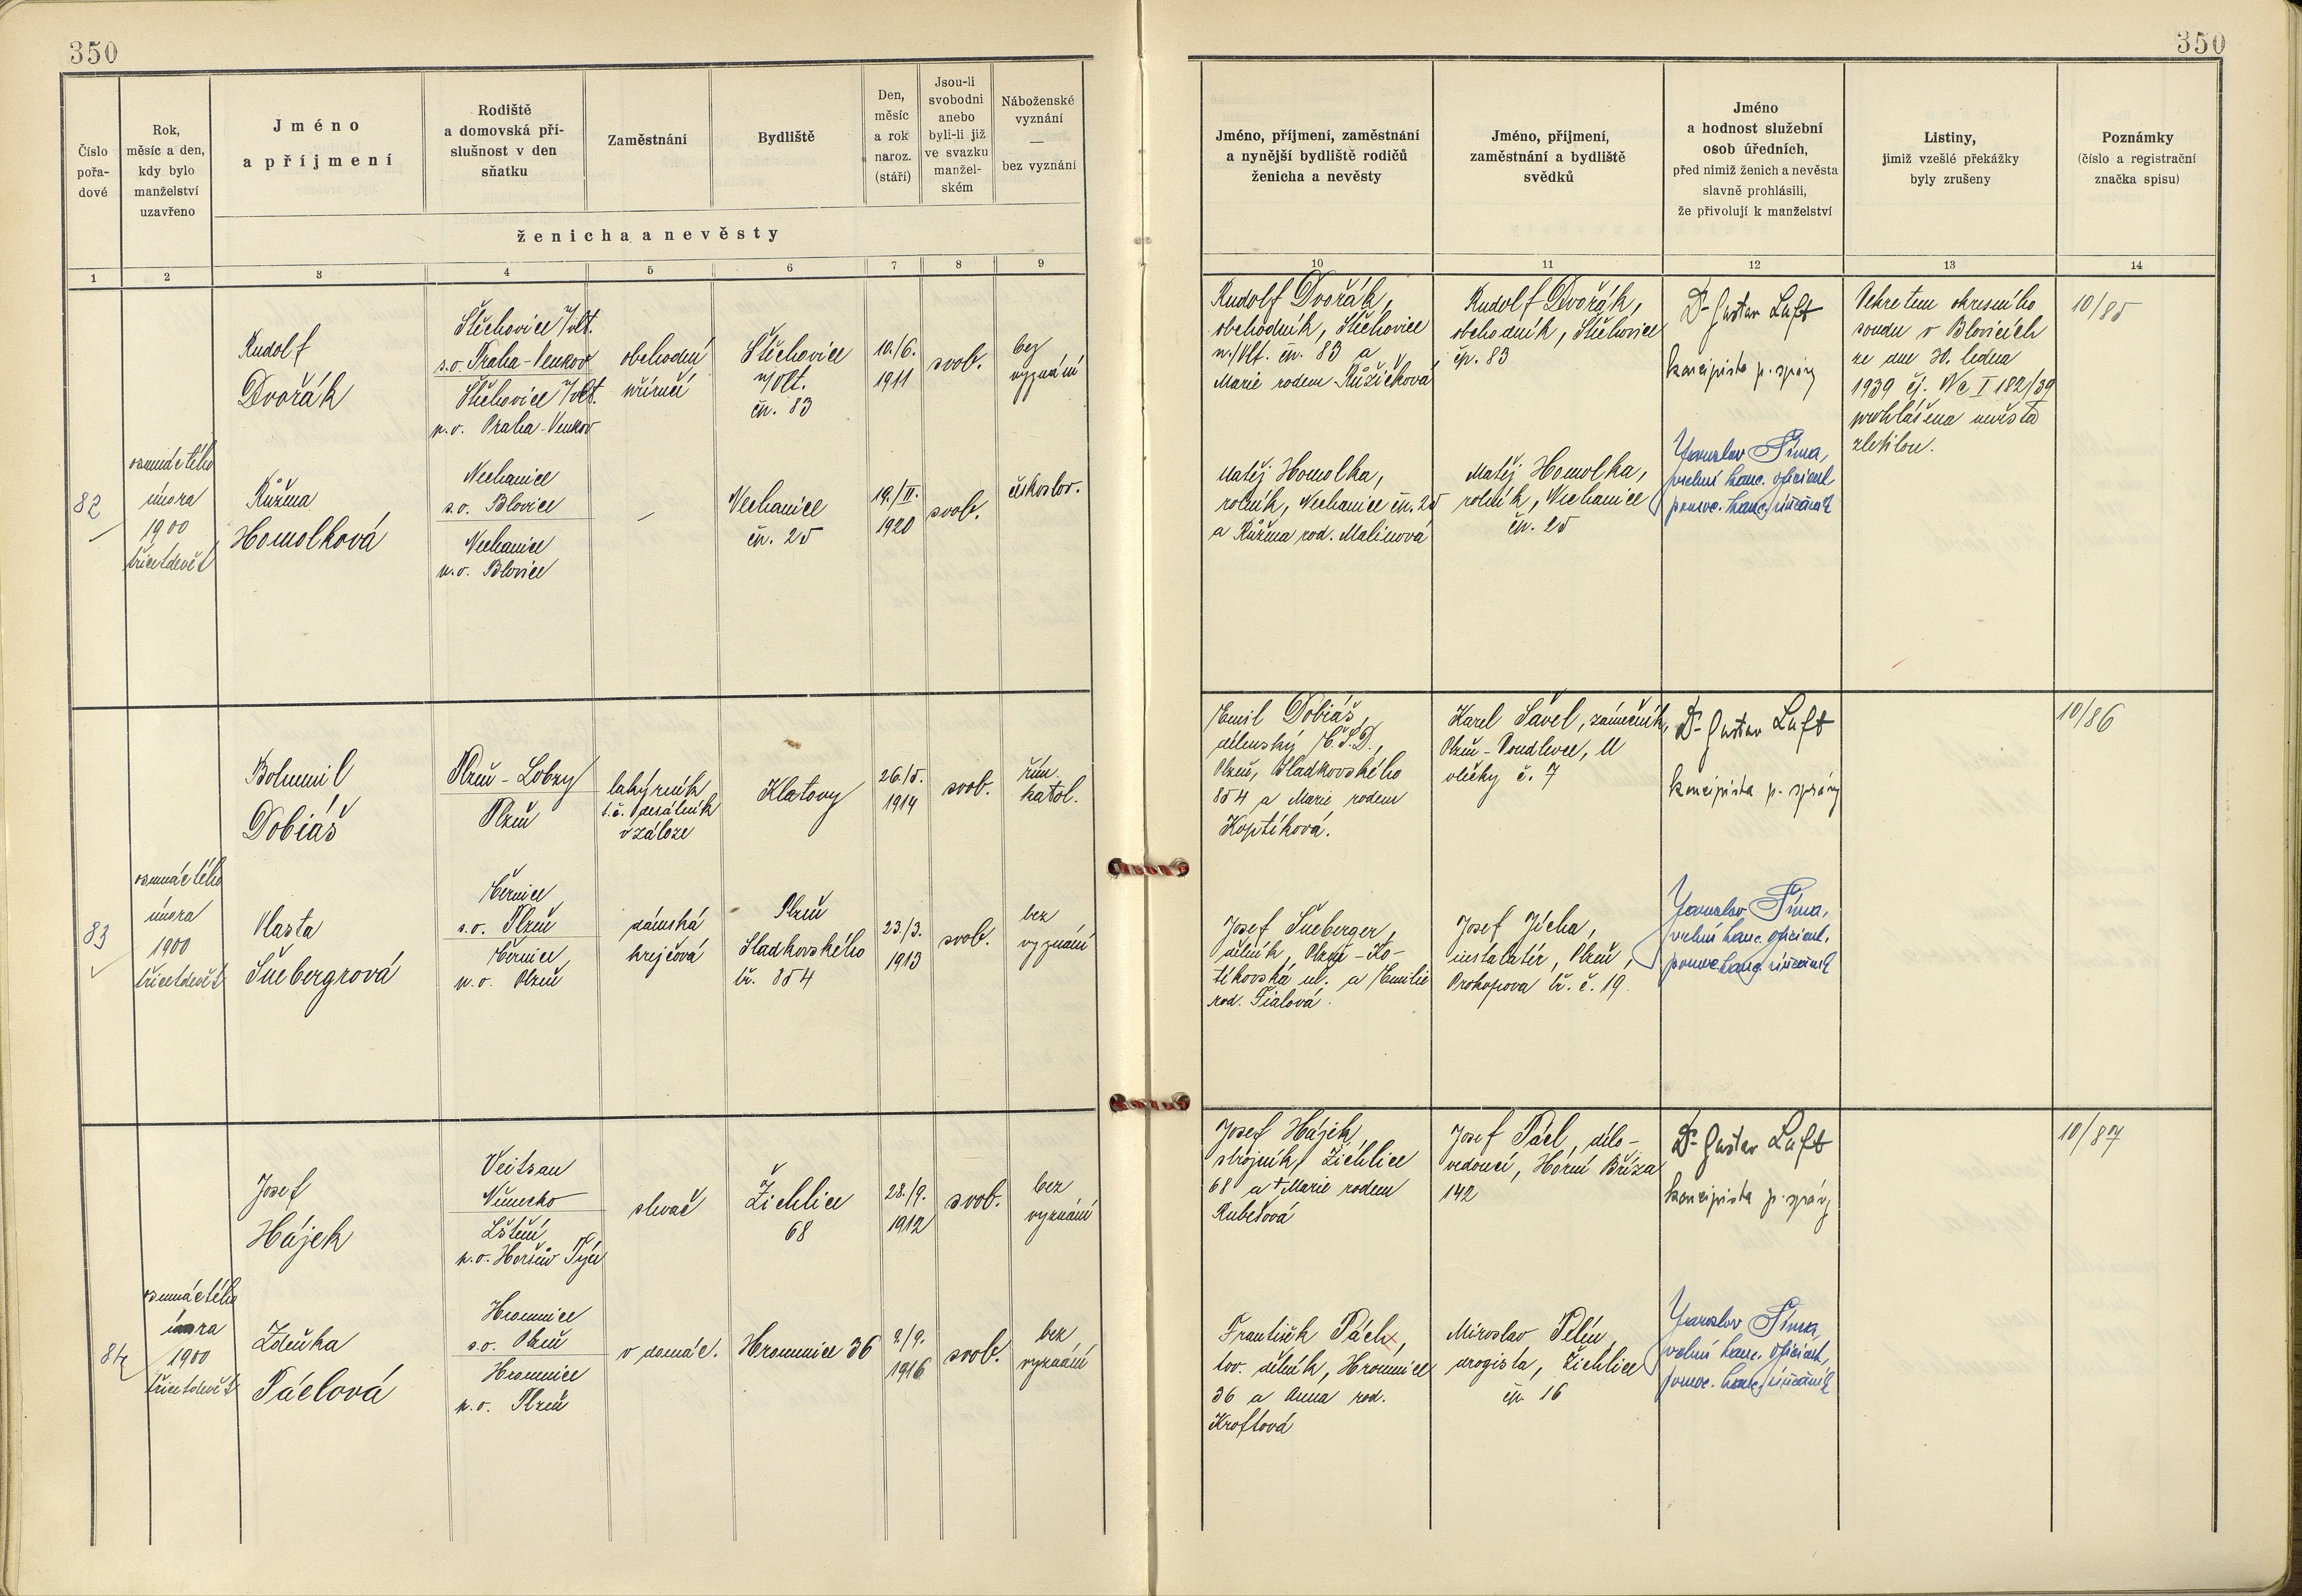 350
350
Číslo
pořa-
dové
Rok,
měsíc a den,
kdy bylo
manželství
uzavřeno
Jméno
a příjmení
Rodiště
a domovská pří-
slušnost v den
sňatku
Zaměstnání
Bydliště
Den,
měsíc
a rok
naroz.
(stáří)
Jsou-li
svobodni
anebo
byli-li již
ve svazku
manžel-
ském
Náboženské
vyznání
—
bez vyznání
ženicha a nevěsty
Jméno, příjmení, zaměstnání
a nynější bydliště rodičů
ženicha a nevěsty
Jméno, příjmení,
zaměstnání a bydliště
svědků
Jméno
a hodnost služební
osob úředních,
před nimiž ženich a nevěsta
slavně prohlásili,
že přivolují k manželství
Listiny,
jimiž vzešlé překážky
byly zrušeny
Poznámky
(číslo a registrační
značka spisu)
1 2 3 4 5 6 7 8 9 10 11 12 13 14
82
osmnáctého
února
1900
třicetdevět
Rudolf
Dvořák
Štěchovice /Vlt.
s.o. Praha-Venkov
Štěchovice /Vlt.
p.o. Praha-Venkov
obchodní
příručí
Štěchovice
n/Vlt.
čp. 83
10./6.
1911
svob.
bez
vyznání
Růžena
Homolková
Nechanice
s.o. Blovice
Nechanice
p.o. Blovice
—
Nechanice
čp. 25
19./II.
1920
svob.
českoslov.
Rudolf Dvořák,
obchodník, Štěchovice
n./Vlt. čp. 83 a
Marie rodem Růžičková
Matěj Homolka,
rolník, Nechanice čp. 25
a Růžena rod. Malinová
Rudolf Dvořák,
obchodník, Štěchovice
čp. 83
Matěj Homolka,
rolník, Nechanice
čp. 25
Dr. Gustav Luft
koncipista p. správy
Jaroslav Šíma,
vrchní kanc. oficiant,
pomoc. kanc. úředník
Dekretem okresního
soudu v Blovicích
ze dne 30. ledna
1939 čj. Nc I 182/39
prohlášena nevěsta
zletilou.
10/85
83
osmnáctého
února
1900
třicetdevět
Bohumil
Dobiáš
Plzeň - Lobzy
Plzeň
lakýrník
t.č. desátník
v záloze
Klatovy
26./5.
1914
svob.
řím.
katol.
Vlasta
Šnebergrová
Černice
s.o. Plzeň
Černice
p.o. Plzeň
dámská
krejčová
Plzeň
Sladkovského
tř. 854
23./3.
1913
svob.
bez
vyznání
Emil Dobiáš,
dílenský Č.S.D.,
Plzeň, Sladkovského
854 a Marie rodem
Koptíková.
Josef Šneberger,
dělník, Plzeň -
ul. a Emilie
rod. Fialová.
Karel Šavel, zámečník,
Plzeň - Doudlevce, U
vlečky č. 7
Josef Jícha,
instalatér, Plzeň,
Prokopova tř. č. 19.
Dr. Gustav Luft
koncipista p. správy
Jaroslav Šíma,
vrchní kanc. oficiant,
pomoc. kanc. úředník
10/86
84
osmnáctého
února
1900
třicetdevět
Josef
Hájek
Veitsau
Německo
Lštění,
p.o. Horšův Týn
slevač
Žichlice
68
28./9.
1912
svob.
bez
vyznání
Zdeňka
Páclová
Hromnice
s.o. Plzeň
Hromnice
p.o. Plzeň
v domác.
Hromnice 36
2./9.
1916
svob.
bez
vyznání
Josef Hájek,
strojník, Žichlice
68 a †Marie rodem
Rubešová
František Pácl,
tov. dělník, Hromnice
36 a Anna rod.
Kroftová
Josef Pácl, dílo-
vedoucí, Horní Bříza
142
Miroslav Pelén,
drogista, Žichlice
čp. 16
Dr. Gustav Luft
koncipista p. správy
Jaroslav Šíma,
vrchní kanc. oficiant,
pomoc. kanc. úředník
10/87